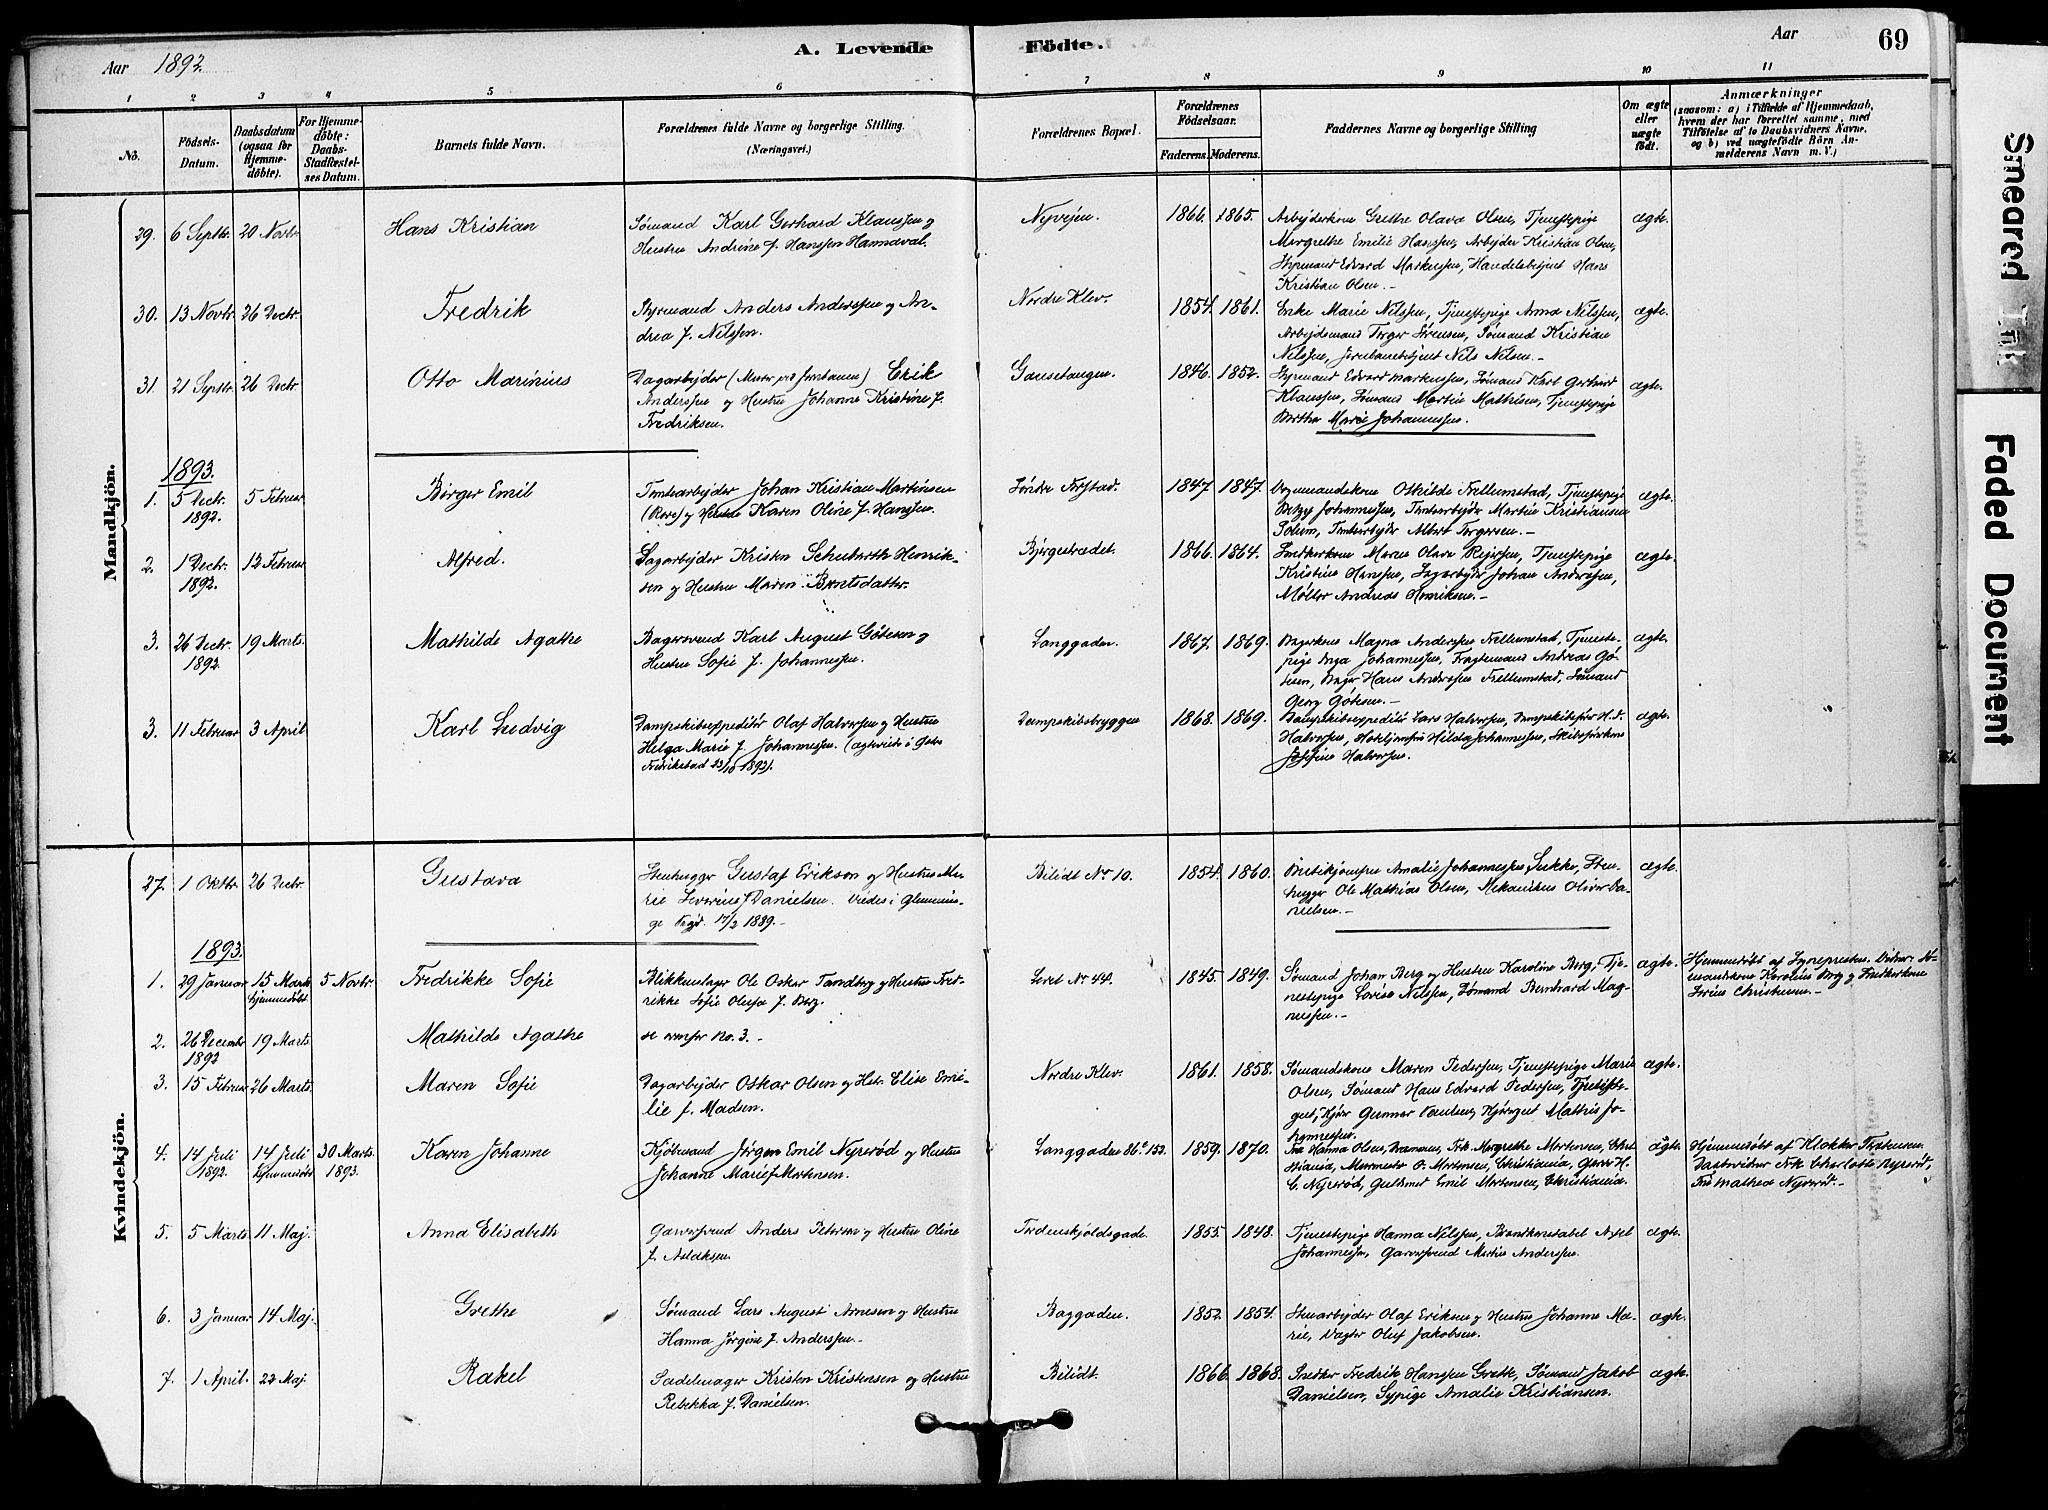 Aar 1892.
A. Levende Födte.
Aar
69
1 2 3 4 5 6 7 8 9 10 11
No.
Födsels-Datum.
Daabsdatum (ogsaa for Hjemme-döbte).
For Hjemme-döbte: Daabs-Stadfæstel-ses Datum.
Barnets fulde Navn.
Forældrenes fulde Navne og borgerlige Stilling.
(Næringsvei.)
Forældrenes Bopæl.
Forældrenes Födselsaar.
Faderens. Moderens.
Faddernes Navne og borgerlige Stilling
Om ægte eller uægte födt.
Anmærkninger
(saasom: a) i Tilfælde af Hjemmedaab,
hvem der har forrettet samme, med
Tilföielse af to Daabsvidners Navne,
og b) ved uægtefödte Börn An-
melderens Navn m. V.)
Mandkjön.
29. 6 Septbr. 20 Novbr Hans Kristian
Sømand Karl Gerhard Klaussen og
Hustru Andrine f. Hanssen Hannaval.
Nyvejen. 1866. 1865.
Arbejderkone Grethe Olava Olsen, Tjenestepige
Margrethe Emilie Hanssen, Arbejder Kristian Olsen,
Styrmand Edvard Markussen, Handelsbetjent Hans
Kristian Olsen.-
ægte.
30. 13 Novbr. 26 Decbr. Fredrik
Styrmand Anders Anderssen og An-
drea f. Nilssen.
Nordre Klev. 1854. 1861.
Enke Marie Nilssen, Tjenestepige Anna Nilssen,
Arbejdsmand Torger Sørensen, Sømand Kristian
Nilssen, Jernbanebetjent Nils Nilsen.-
ægte.
31. 21 Septbr. 26 Decbr. Otto Marinius
Dagarbejder (Murer ved Jernbanen) Erik
Anderssen og Hustru Johanne Kristine f.
Fredriksen.
Gausetangen. 1846. 1852.
Styrmand Edvard Markussen, Sømand Karl Gerhard
Klaussen, Sømand Martin Mathisen, Tjenestepige
Berthe Marie Johannessen.
ægte.
1893.
1. 5 Decbr. 1892. 5 Februar Birger Emil
Tomtearbejder Johan Kristian Martinsen
(Rove) og Hustru Karen Oline f. Hanssen.
Søndre 1847 1847.
Othilde Frellumstad, Tjenestepige
Betzy Johannessen, Tomtearbejder Martin Kristiansen
Solum, Tomtearbejder Albert Torgersen.-
ægte.
2. 1 Decbr. 1892. 12 Februar Alfred.
Dagarbejder Kristen Schuberth Henrik-
sen og Hustru Maren Berntsdatter.
Bjergestrædet. 1866. 1864.
Snedkerkone Maren Olava Rejersen, Tjenestepige
Kristine Hanssen, Dagarbejder Johan Anderssen,
Møller Andreas Henriksen.-
ægte.
3. 26 Decbr. 1892. 19 Marts. Mathilde Agathe
Bagersvend Karl August Gøtesen og
Hustru Sofie f. Johannessen.
Langgaden. 1867. 1869.
Bagerkone Magna Anderssen Frellumstad, Tjeneste-
pige Inga Johannessen, Fragtemand Andreas Gø-
tesen, Bager Hans Anderssen Frellumstad, Sømand
Georg Gøtesen.
ægte.
3. 11 Februar 3 April Karl Ludvig
Dampskibsexpeditør Olaf Halvorsen og Hustru
Helga Marie f. Johannessen. (ægteviede i Østre
Fredrikstad 23/10 1892).
Dampskibsbryggen 1868. 1869.
Dampskibsexpeditør Lars Halvorsen, Dampskibsfører H.J.
Halvorsen, Hotelj Hilda Johannessen, Skibsførerkone
Josefine Halvorsen.
ægte.
Kvindekjön.
27. 1 Oktbr. 26 Decbr. Gustava
Stenhugger Gustaf Erikson og Hustru Ma-
rie Severine f Danielsen. Viedes i Glemmin-
ge 17/2 1889.-
Bilidt No 10. 1854. 1860.
Butikjomfru Amalie Johannessen Lukke, Sten-
hugger Ole Mathias Olsen, Mekanikus Oliver Da-
nielsen.-
ægte.
1893.
1. 29 Januar 15 Marts hjemmedøbt 5 Novbr. Fredrikke Sofie
Blikkenslager Ole Oskar Tandberg og Hustru Fred-
rikke Sofie Olufa f. Berg.
Leret No 44. 1845. 1849.
Sømand Johan Berg og Hustru Karoline Berg, Tje-
nestepige Lovise Nilssen, Sømand Bernhard Mag-
nussen.-
ægte.
Hjemmedøbt af Sognepresten. Vidner: Sø-
mandskone Karoline Berg og Snedkerkone
Christensen.-
2. 26 Decembr 1892 19 Marts Mathilde Agathe
se ovenfor No. 3.-
3. 15 Februar 26 Marts. Maren Sofie
Dagarbejder Oskar Olsen og Hstr. Elise Emi-
lie f. Madsen.
Nordre Klev. 1861. 1858.
Sømandskone Maren Pedersen, Tjenestepige Marie
Olsen, Sømand Hans Edvard Pedersen, Tjeneste-
gut, Kjør Gunnar Paulsen, Kjøregut Mathis Jo-
hannessen.
ægte.
4. 14 Juli 1892. 14 Juli hjemmedøbt 30 Marts 1893. Karen Johanne
Kjøbmand Jørgen Emil Nyrerød og Hustru
Johanne Marie f Mortensen.
Langgaden 86 & 152. 1859. 1870.
Fru Hanna Olsen, Drammen, Frk. Margrethe Mortensen, Chri-
stiania, Murmester O. Mortensen, Christiania, Garver H.
C. Nyrerød, Guldsmed Emil Mortensen, Christiania.
ægte.
Hjemmedøbt af Klokker Torstensen.
Daabsvidner Frk Charlotte Nyrerød,
Fru Mathea Nyrerød.-
5. 5 Marts 11 Maj. Anna Elisabeth
Garversvend Anders Peterson og Hustru Oline
f. Aslaksen.
Tordenskjoldsgade. 1855. 1848.
Tjenestepige Hanna Nilssen, Brandkonstabel Axel
Johannessen, Garversvend Martin Anderssen.
ægte.
6. 3 Januar 14 Maj. Grethe
Sømand Lars August Arnesen og Hustru
Hanna Jørgine f. Anderssen.
Baggaden. 1852. 1854.
Stenarbejder Olaf Eriksen og Hustru Johanne Ma-
rie, Vagter Oluf Jakobsen.
ægte.
7. 1 April. 22 Maj Rakel
Sadelmager Kristen Kristensen og Hustru
Rebekka f. Danielsen.
Bilidt. 1866. 1868.
Snedker Fredrik Hanssen Grette, Sømand Jakob
Danielsen, Sypige Amalie Kristiansen.
ægte.
Smeared Ink
Faded Document